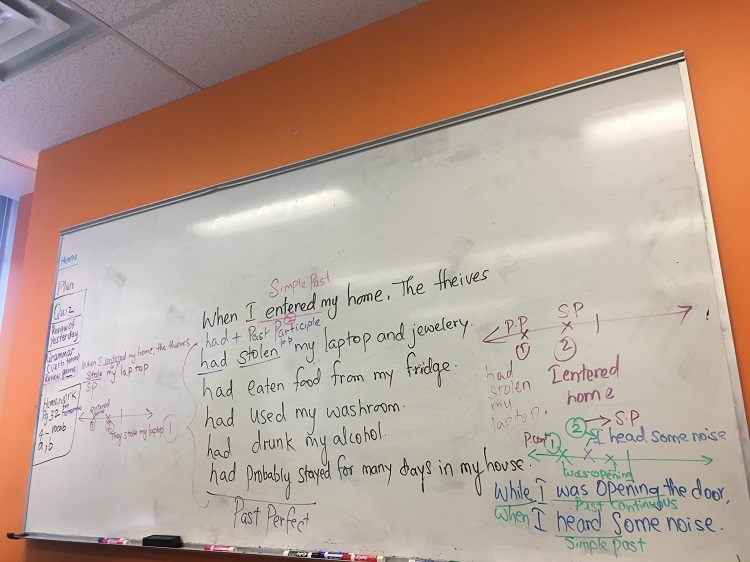 Home
Plan
Quiz
Review of
Yesterday
Grammar
(verb tense)
Review game
Homework
Pg 32
a, b
When I entered my home, the theives
Stole my laptop
S.P
entered
① ②
They stole my laptop
①
Simple Past
When I entered my home, The theives
②
had + Past Participle
had stolen my laptop and jewelery.
P.P
had eaten food from my fridge.
had used my washroom.
had drunk my alcohol.
had probably stayed for many days in my house.
Past Perfect
P.P S.P
① ②
had
stolen
my
laptop.
I entered
home
② → S.P
P.cont ① I head some noise
was opening
While I was Opening the door,
Past continuous
When I heard Some noise.
Simple past